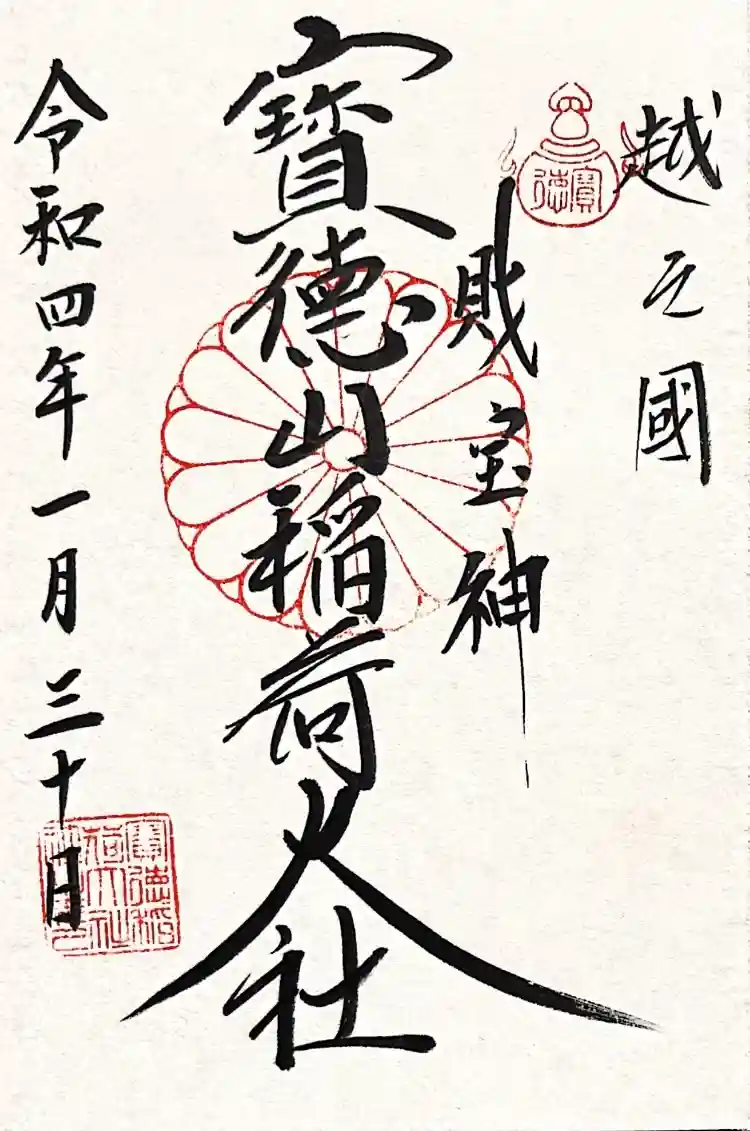 越之國
寶德
財宝神
寶德山稲荷大社
令和四年一月三十日